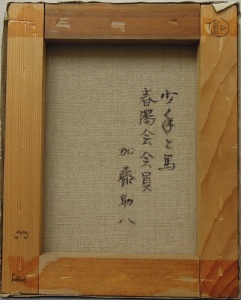 少年と馬
春陽会会員
加藤助八
3